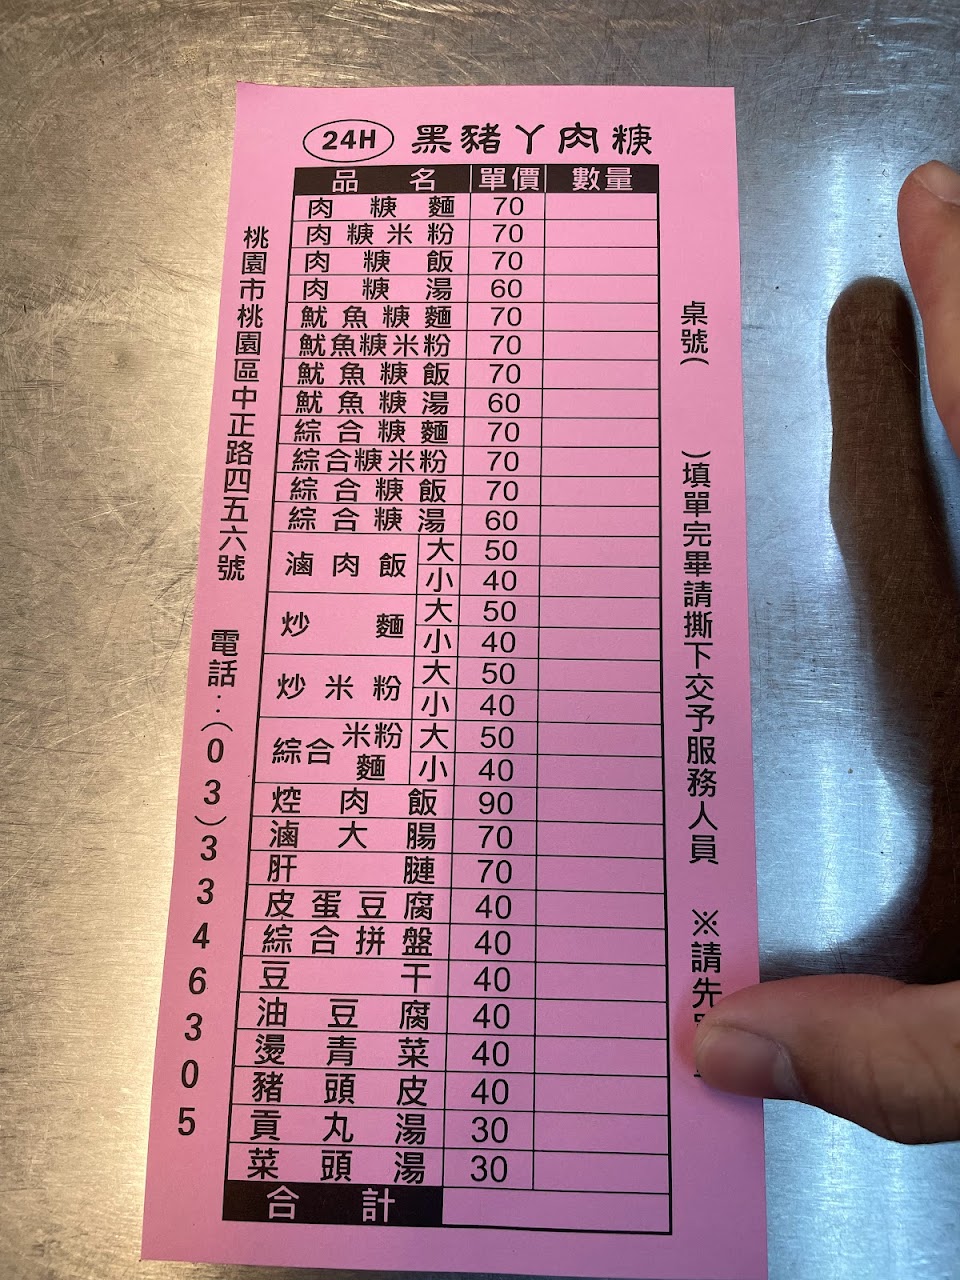 24H 黑豬丫肉焿
品名 單價 數量
肉焿麵 70
肉焿米粉 70
肉焿飯 70
肉焿湯 60
魷魚焿麵 70
魷魚焿米粉 70
魷魚焿飯 70
魷魚焿湯 60
綜合焿麵 70
綜合焿米粉 70
綜合焿飯 70
綜合焿湯 60
滷肉飯 大 50
小 40
炒麵 大 50
小 40
炒米粉 大 50
小 40
綜合 米粉 麵 大 50
小 40
焢肉飯 90
滷大腸 70
肝腱 70
皮蛋豆腐 40
綜合拼盤 40
豆干 40
油豆腐 40
燙青菜 40
豬頭皮 40
貢丸湯 30
菜頭湯 30
合計
桃園市桃園區中正路四五六號 電話:(03)3346305
桌號( )填單完畢請撕下交予服務人員 ※請先